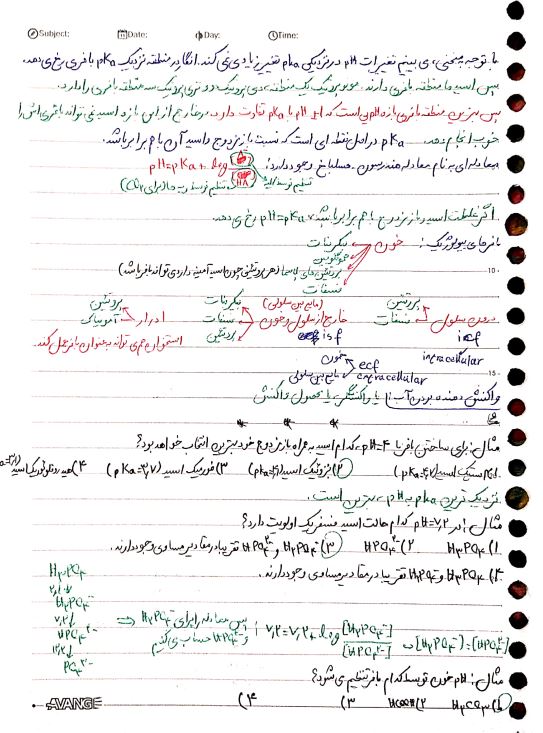 Subject: Date: Day: Time:
با توجه به منحنی، می بینیم تغییرات pH در نزدیکی pka تغییر زیادی نمی کند. انگار در منطقه نزدیک pKa بافری رخ می دهد.
پس اسیدها منطقه بافری دارند. مونوپروتیک یک منطقه، دی پروتیک دو، تری پروتیک سه منطقه بافری را دارد.
پس بهترین منطقه بافری بازه pH یی است که 1± pH با pKa تفاوت دارد و خارج از این بازه اسید نمی تواند بافری اش را
خوب انجام دهد. pKa در اصل نقطه ای است که نسبت باز مزدوج و اسید آن با هم برابر باشد.
معادله ای به نام معادله هندرسون - هسلباخ وجود دارد: pH = pKa + log [A-] / [HA]
تنظیم توسط کلیه
تنظیم توسط ریه حالا برای CO2
اگر غلظت اسید و باز مزدوج با هم برابر باشد، pH = pKa رخ می دهد.
بافرهای بیولوژیک: خون
بیکربنات
هموگلوبین
پروتئین های پلاسما (هر پروتئینی چون اسید آمینه دارد می تواند بافر باشد)
فسفات
درون سلول
پروتئین
فسفات
icf
intracellular
خارج از سلول و خون (مایع بین سلولی)
بیکربنات
فسفات
پروتئین
isf
ادرار
پروتئین
آمونیاک
استخوان هم می تواند به عنوان بافر عمل کند.
ecf
extracellular
خون
مایع بین سلولی
واکنش دهنده بودن آب: یا واکنشگر، یا محصول واکنش
* * *
مثال: برای ساختن بافر با pH=۴، کدام اسید به همراه باز مزدوج خود بهترین انتخاب خواهد بود؟
۱) استیک اسید (pKa=۴,۷) ۲) بنزوئیک اسید (pka=۴,۲) ۳) فورمیک اسید (pKa=۳,۷) ۴) هیدروفلوئوریک اسید
نزدیک ترین pka به pH، بهترین است.
مثال: در pH=۷,۲ کدام حالت اسید فسفریک اولویت دارد؟
۱) H₃PO₄ ۲) HPO₄²⁻ ۳) H₂PO₄⁻ و HPO₄²⁻ تقریبا در مقادیر مساوی وجود دارند.
۴) H₃PO₄ و H₂PO₄⁻ تقریبا در مقادیر مساوی وجود دارند.
H₃PO₄
۲,۱
H₂PO₄⁻
۷,۲
HPO₄²⁻
۱۲,۲
PO₄³⁻
پس معادله را برای H₂PO₄⁻ و HPO₄²⁻ حساب می کنیم
مثال: pH خون توسط کدام بافر تنظیم می شود؟
۱) H₂CO₃ ۲) ۳) ۴)
AVANGE